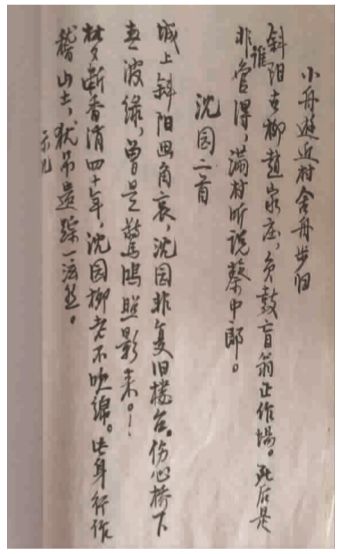 小舟遊近村舍舟步归
斜阳古柳赵家庄,负鼓盲翁正作场。死后是
非谁管得,满村听说蔡中郎。
沈园二首
城上斜阳画角哀,沈园非复旧楼台。伤心桥下
春波绿,曾是驚鸿照影来。!
梦断香消四十年,沈园柳老不吹绵。此身行作
稽山土,犹吊遗踪一泫然。
示儿